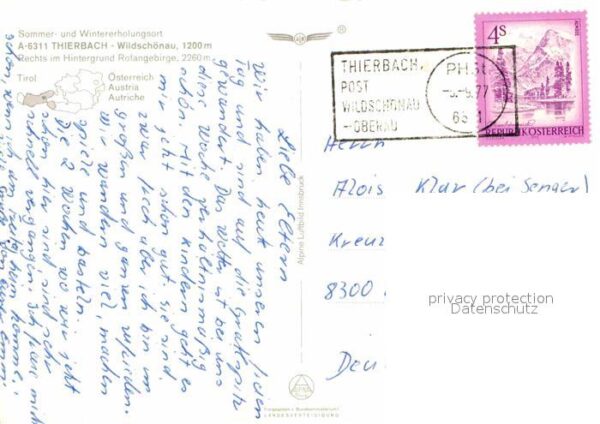 Sommer- und Wintererholungsort
A-6311 THIERBACH - Wildschönau, 1200 m
Rechts im Hintergrund Rofangebirge, 2260 m
Tirol
Österreich
Austria
Autriche
Liebe Eltern
Wir haben heut unseren freien
Tag und sind auf die Gratlspitz
gewandert. Das Wetter ist bei uns
diese Woche verhältnismäßig
schön. Mit den Kindern geht es
mir jetzt schon gut. sie sind
zwar frech aber ich bin im
großen und ganzen zufrieden.
Wir wandern viel, machen
Spiele und basteln.
Die 2 Wochen wo wir jetzt
schon hier sind sind sehr
schnell vergangen. Ich freue mich
schon, wenn ich
Alpine Luftbild Innsbruck
Freigegeben v. Bundesministerium f.
LANDESVERTEIDIGUNG
THIERBACH
POST
WILDSCHÖNAU
-OBERAU
-5.-9.77
4S
ALMSEE
REPUBLIK ÖSTERREICH
Herrn
Alois Klar (bei Senser)
Kreuz
8300
Deu
privacy protection
Datenschutz